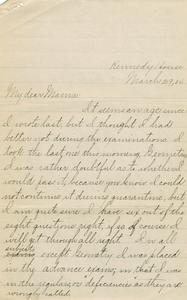 Kennedy House,
March 29,
My dear Mama:
It seems an age since
I wrote last, but I thought I had
better not during the examinations. I
took the last one this morning, Geometry.
I was rather doubtful as to whether I
would pass it, because you know I could
not continue it during quarantine, but
I am quite sure I have six out of the
eight questions right, if so of course I
will get through all right. In all
except Geometry I was placed
in the advance exams, in that I was
in the regular or deficiencies as they are
wrongly called.